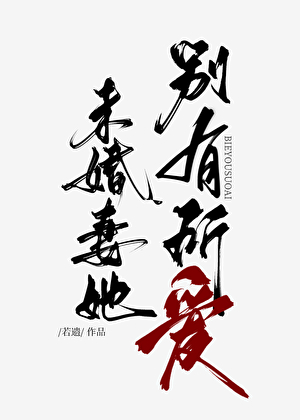 未婚妻她
别有所爱
BIEYOUSUOAI
/若遒/ 作品